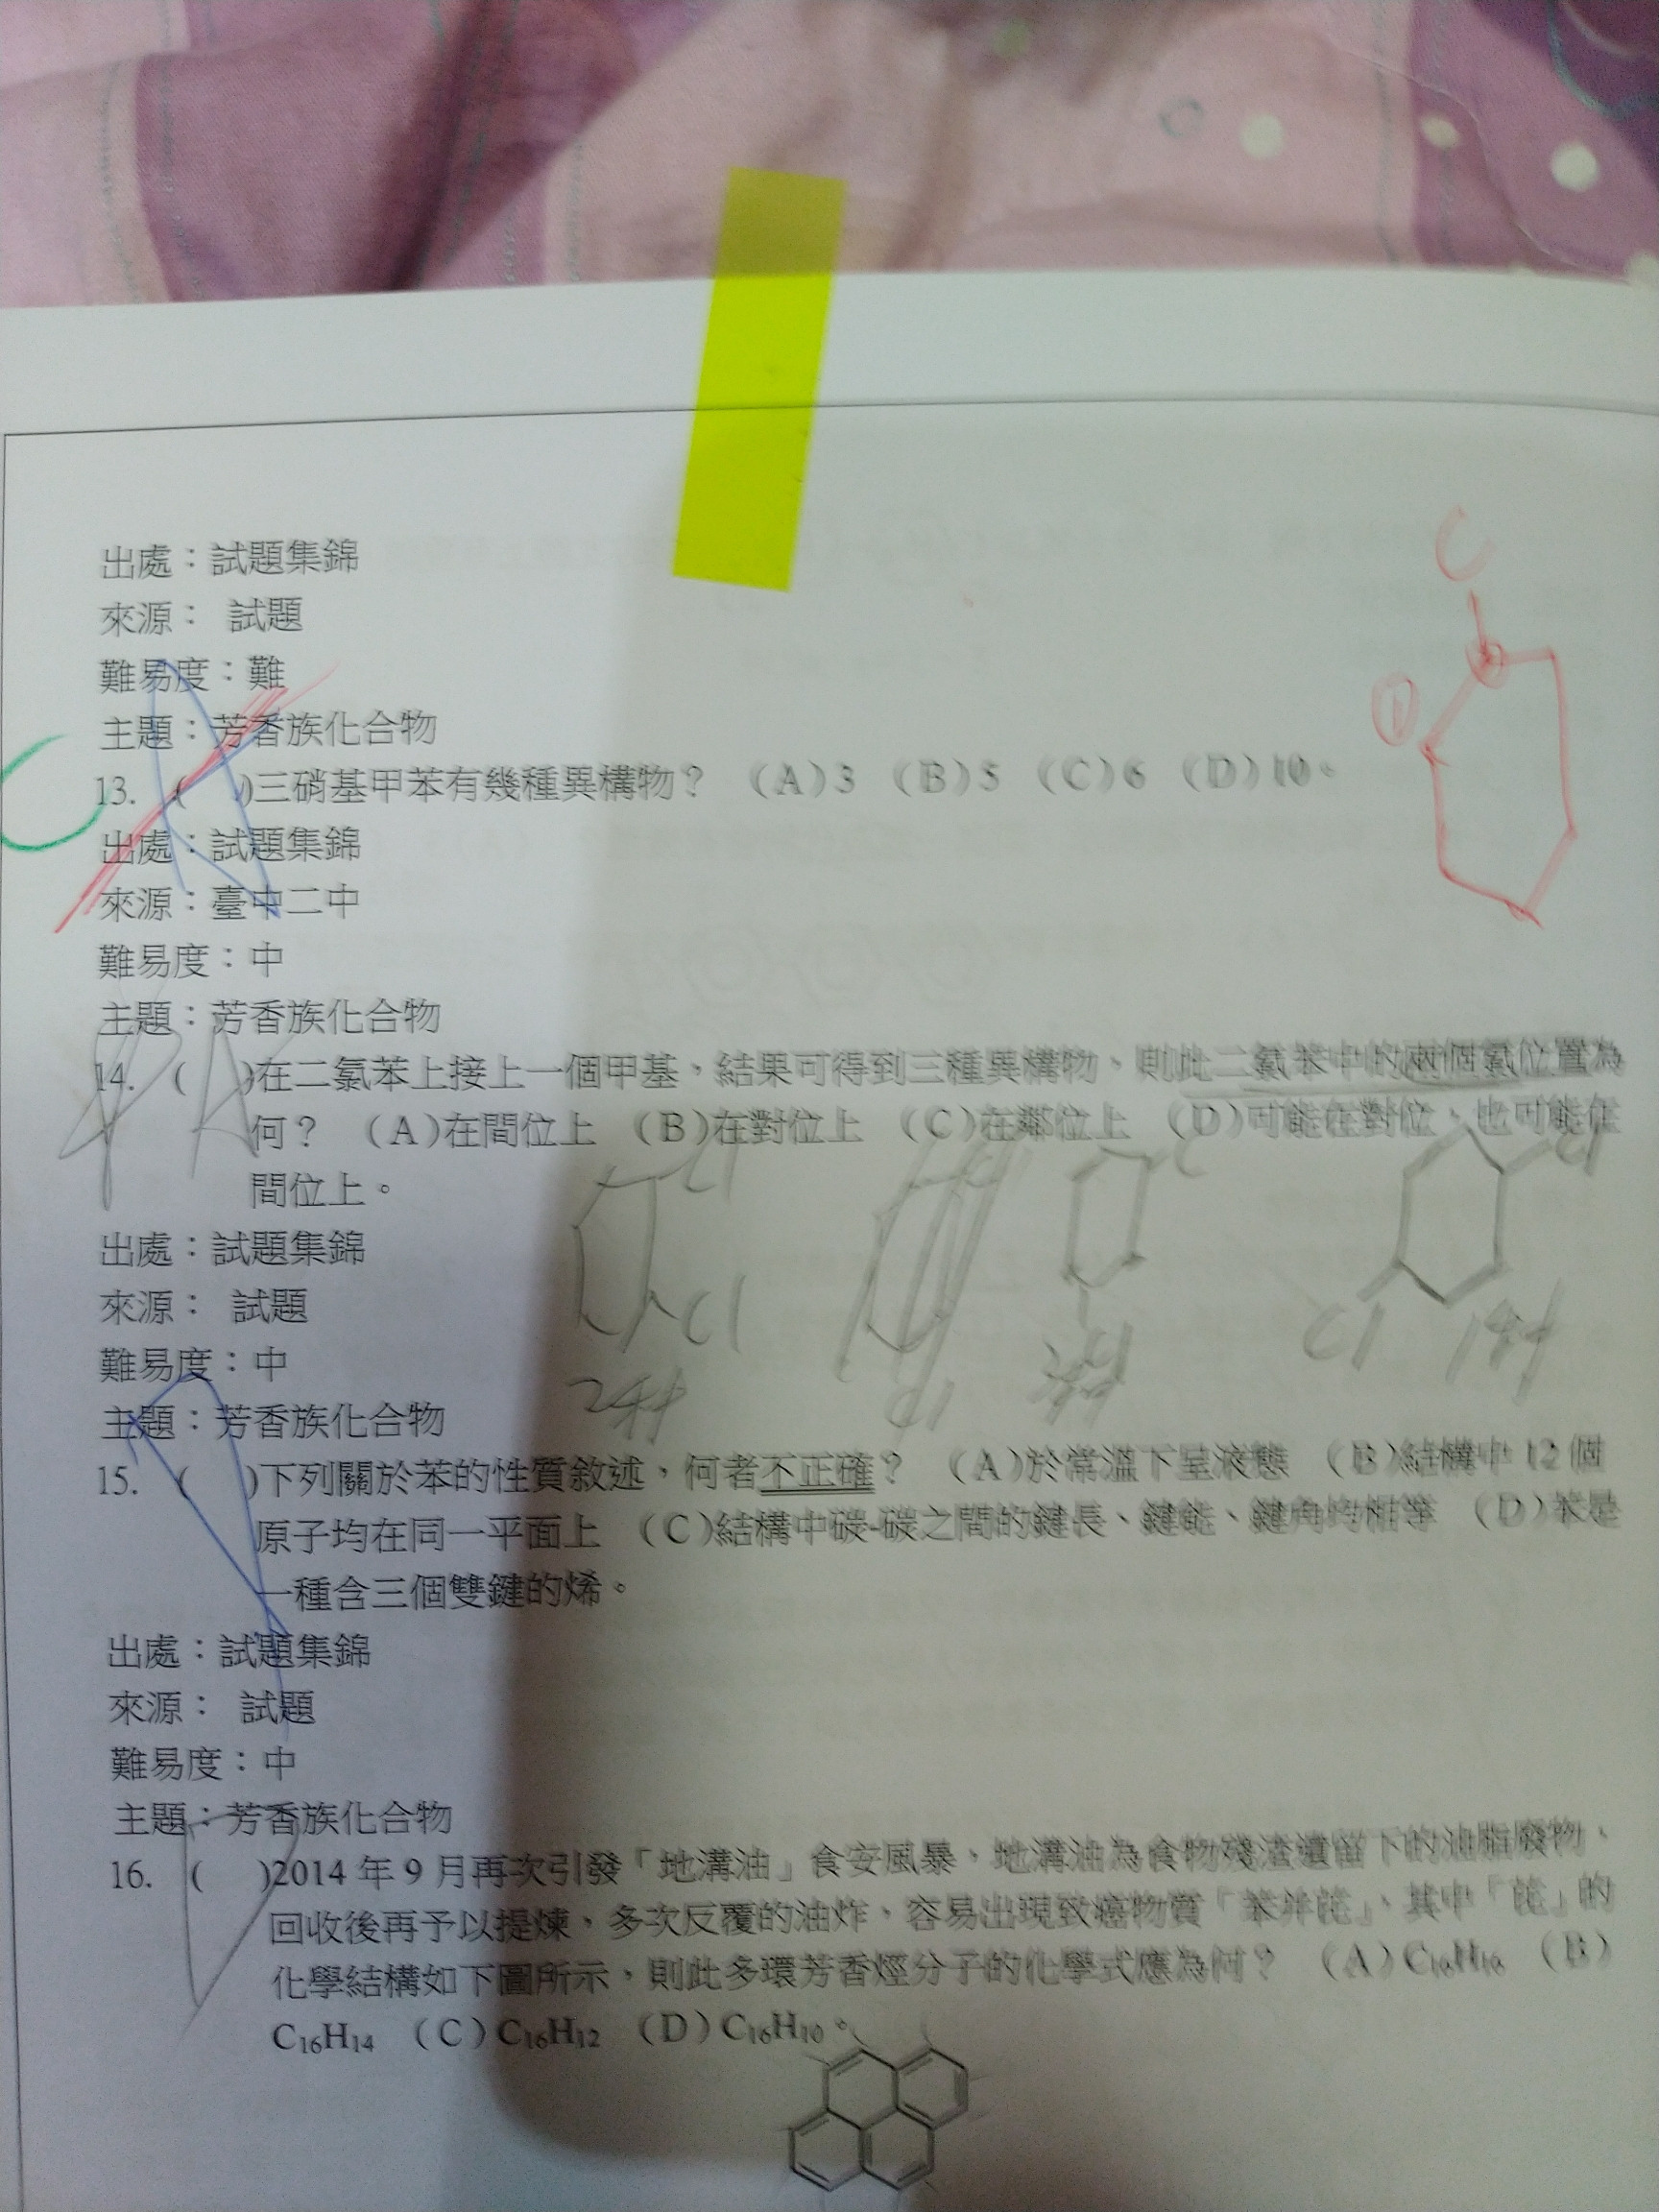 出處：試題集錦
來源： 試題
難易度：難
主題：芳香族化合物
13. ( )三硝基甲苯有幾種異構物？ (A)3 (B)5 (C)6 (D)10。
出處：試題集錦
來源：臺中二中
難易度：中
主題：芳香族化合物
14. ( )在二氯苯上接上一個甲基，結果可得到三種異構物，則此二氯苯中的兩個氯位置為
何？ (A)在間位上 (B)在對位上 (C)在鄰位上 (D)可能在對位，也可能在
間位上。
出處：試題集錦
來源： 試題
難易度：中
主題：芳香族化合物
15. ( )下列關於苯的性質敘述，何者不正確？ (A)於常溫下呈液態 (B)結構中 12 個
原子均在同一平面上 (C)結構中碳-碳之間的鍵長、鍵能、鍵角均相等 (D)苯是
一種含三個雙鍵的烯。
出處：試題集錦
來源： 試題
難易度：中
主題：芳香族化合物
16. ( )2014 年 9 月再次引發「地溝油」食安風暴，地溝油為食物殘渣遺留下的油脂廢物，
回收後再予以提煉，多次反覆的油炸，容易出現致癌物質「苯并芘」，其中「芘」的
化學結構如下圖所示，則此多環芳香烴分子的化學式應為何？ (A) (B)
C₁₆H₁₄ (C) C₁₆H₁₂ (D) C₁₆H₁₀。
C
C
A